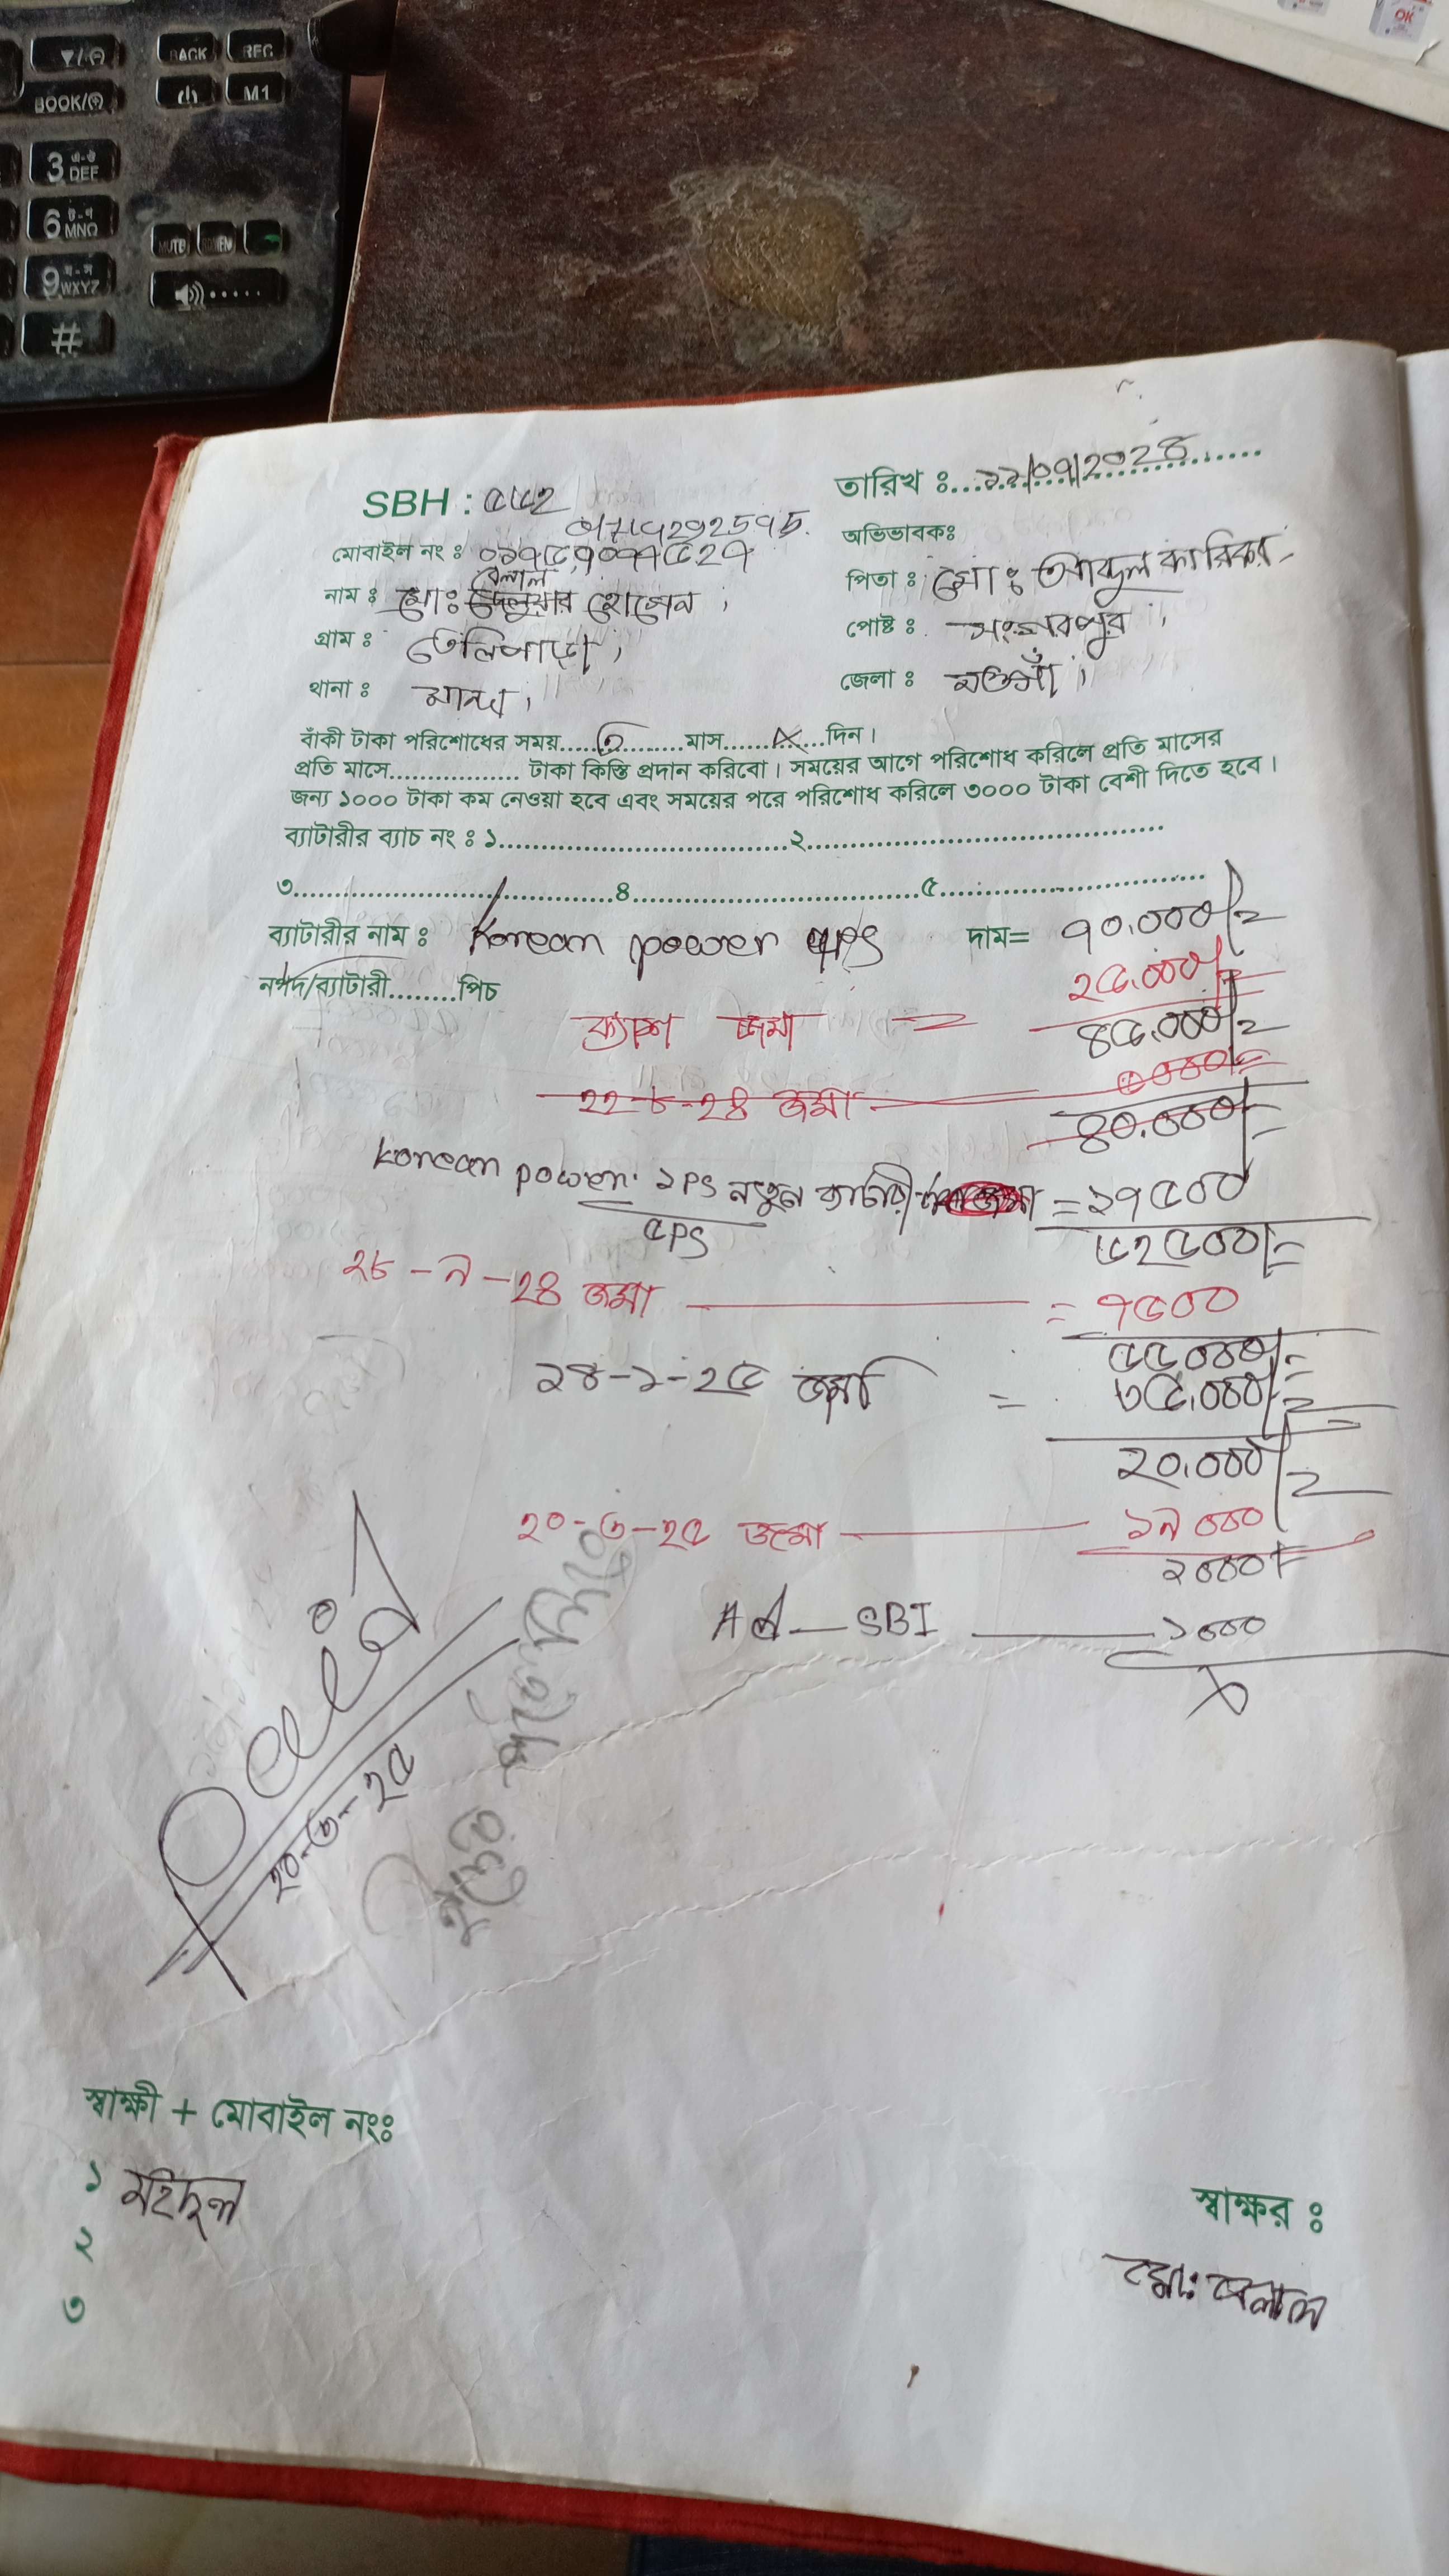 BACK REC
BOOK/ M1
3 DEF
6 MNO
MUTE
9 WXYZ
#
OK
SBH : ৫৫২
তারিখ ঃ
মোবাইল নং ঃ
অভিভাবকঃ
বেলাল
নাম ঃ মোঃ দেলুয়ার হোসেন,
পিতা ঃ মোঃ আব্দুল কারিকর
গ্রাম ঃ তেলিপাড়া,
পোষ্ট ঃ
থানা ঃ মান্দা,
জেলা ঃ নওগাঁ,
বাঁকী টাকা পরিশোধের সময়......৩.........মাস.......X...দিন।
প্রতি মাসে.................. টাকা কিস্তি প্রদান করিবো। সময়ের আগে পরিশোধ করিলে প্রতি মাসের
জন্য ১০০০ টাকা কম নেওয়া হবে এবং সময়ের পরে পরিশোধ করিলে ৩০০০ টাকা বেশী দিতে হবে।
ব্যাটারীর ব্যাচ নং ঃ ১........................................২..................................................
৩.............................................৪........................................৫.....................................
ব্যাটারীর নাম ঃ Korean power ৪ps দাম= ৭০,০০০/=
নগদ/ব্যাটারী........পিচ
ক্যাশ জমা = ২৫,০০০/=
৪৫,০০০/=
২২-৮-২৪ জমা ৫০০০/=
৪০,০০০/=
Korean power ১Ps নতুন ব্যাটারী = ১৭৫০০
৫Ps
৬২৫০০/=
২৮-৯-২৪ জমা = ৭৫০০
৫৫,০০০/=
২৪-১-২৫ জমা = ৩৫,০০০/=
২০,০০০/=
২০-৩-২৫ জমা ১৯০০০
১০০০/=
Ad - SBI ১০০০
X
Paid
২০-৩-২৫
স্বাক্ষী + মোবাইল নংঃ
১ মইদুল
২
৩
স্বাক্ষর ঃ
মোঃ বেলাল